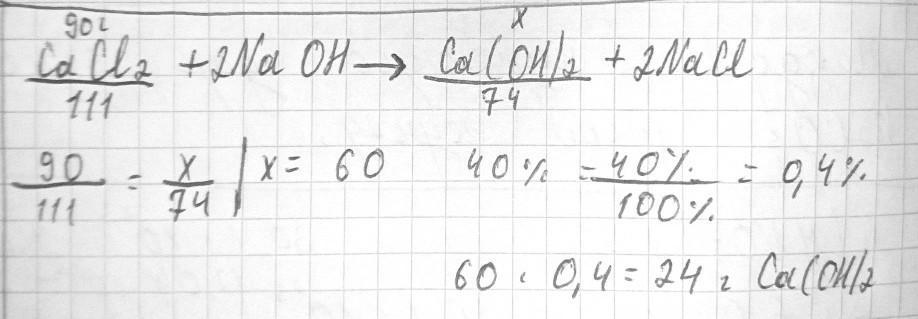 90г x
CaCl2 + 2NaOH → Ca(OH)2 + 2NaCl
111 74
90/111 = x/74 | x = 60 40% = 40%/100% = 0,4%
60 · 0,4 = 24 г Ca(OH)2